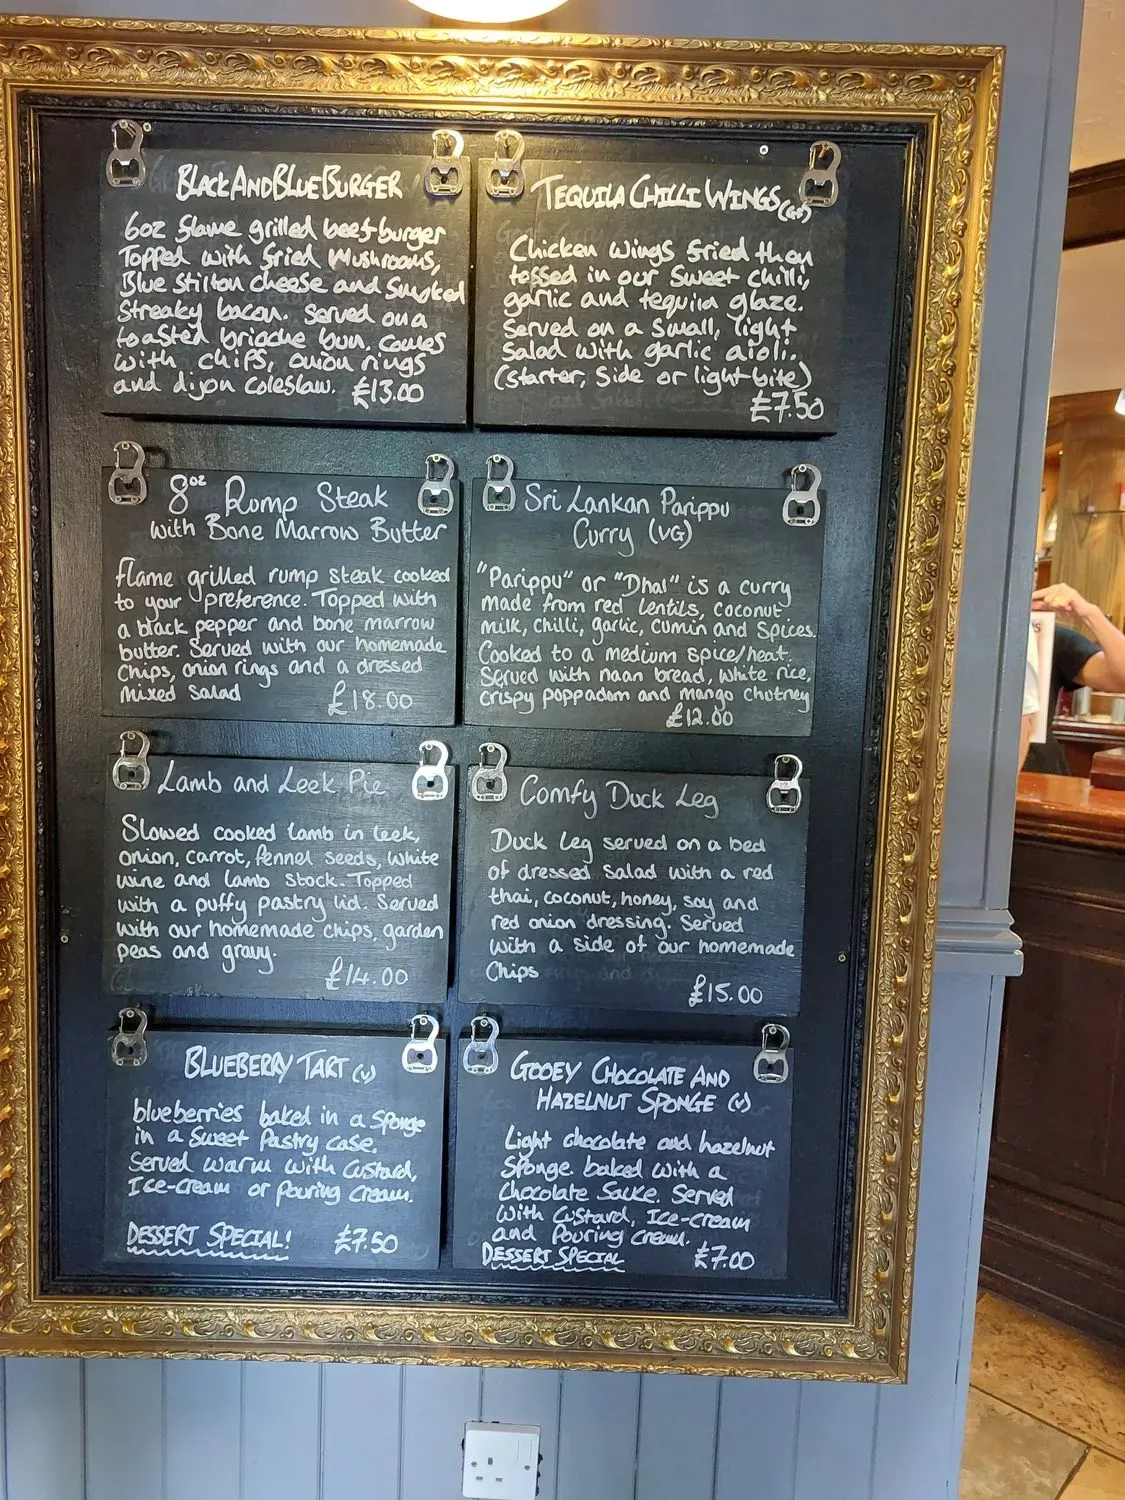 BLACK AND BLUE BURGER
6oz flame grilled beef burger
Topped with fried mushrooms,
Blue stilton cheese and smoked
streaky bacon. Served on a
toasted brioche bun, comes
with chips, onion rings
and dijon coleslaw. £13.00
TEQUILA CHILLI WINGS
Chicken wings fried then
tossed in our sweet chilli,
garlic and tequila glaze.
Served on a small, light
salad with garlic aioli.
(starter, side or light bite)
£7.50
8oz Rump Steak
with Bone Marrow Butter
flame grilled rump steak cooked
to your preference. Topped with
a black pepper and bone marrow
butter. Served with our homemade
chips, onion rings and a dressed
mixed salad
£18.00
Sri Lankan Parippu
Curry (VG)
"Parippu" or "Dhal" is a curry
made from red lentils, coconut
milk, chilli, garlic, cumin and spices.
Cooked to a medium spice/heat.
Served with naan bread, white rice,
crispy poppadom and mango chutney
£12.00
Lamb and Leek Pie
Slowed cooked lamb in leek,
onion, carrot, fennel seeds, white
wine and lamb stock. Topped
with a puffy pastry lid. Served
with our homemade chips, garden
peas and gravy.
£14.00
Comfy Duck Leg
Duck Leg served on a bed
of dressed salad with a red
thai, coconut, honey, soy and
red onion dressing. Served
with a side of our homemade
Chips
£15.00
BLUEBERRY TART (V)
blueberries baked in a sponge
in a sweet pastry case.
Served warm with custard,
Ice-cream or pouring cream.
DESSERT SPECIAL! £7.50
GOOEY CHOCOLATE AND
HAZELNUT SPONGE (V)
Light chocolate and hazelnut
sponge baked with a
chocolate sauce. Served
with custard, Ice-cream
and pouring cream.
DESSERT SPECIAL £7.00